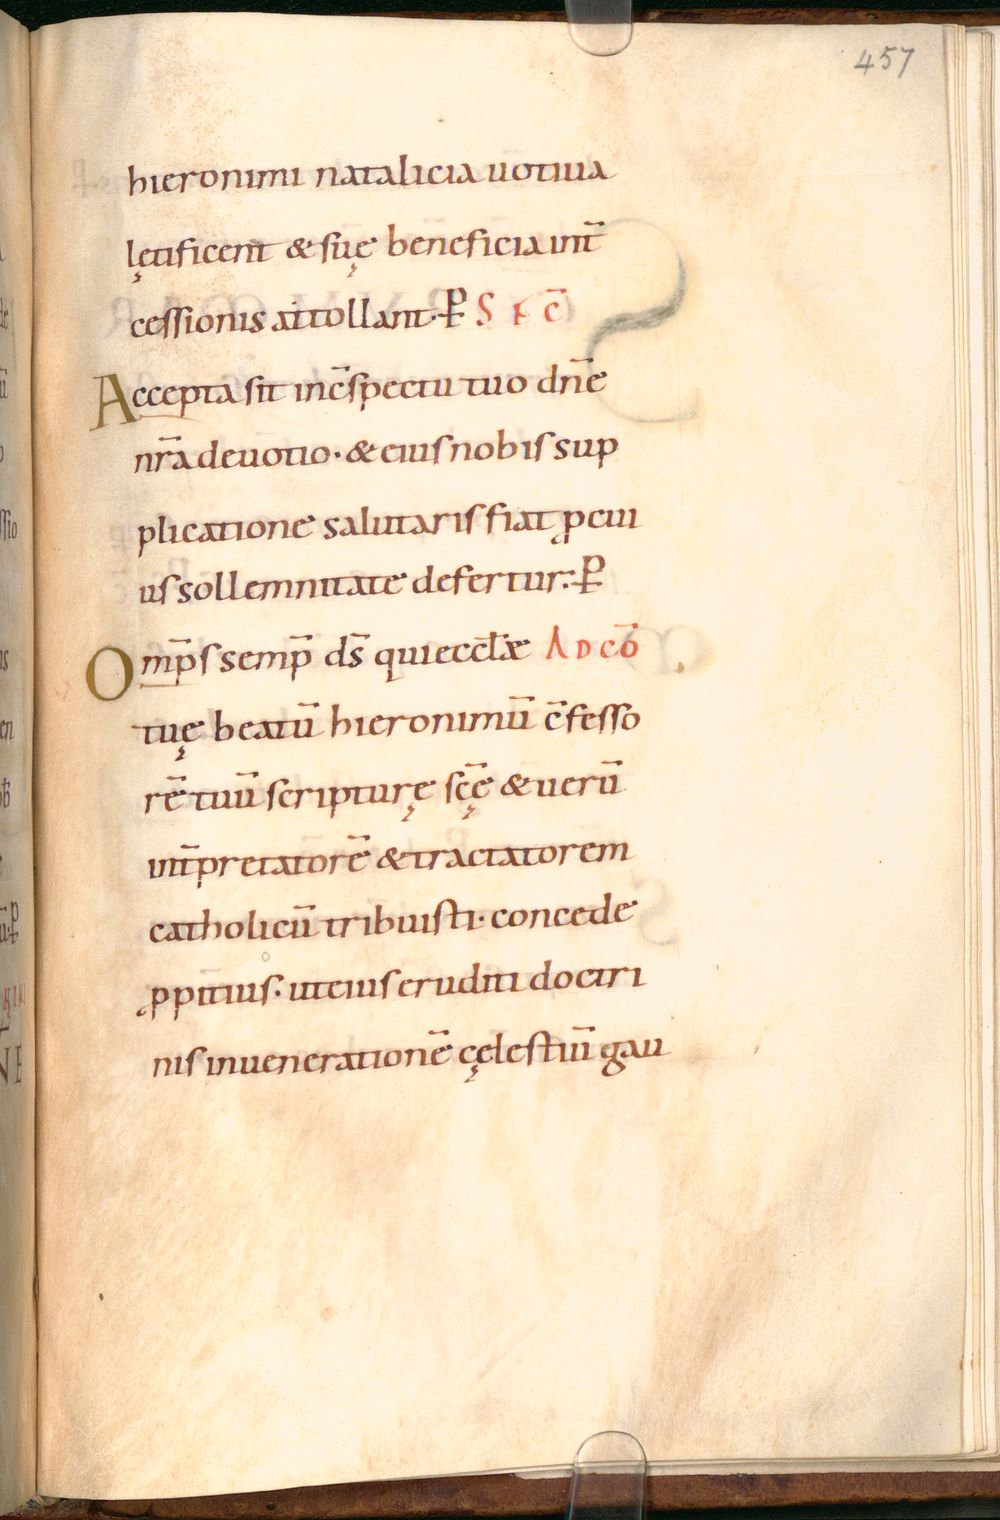 457
hieronimi natalicia uotiua
lętificent & suę beneficia int̄
cessionis attollant· P̄ S E C̄
Accepta sit inc̄spectu tuo dn̄e
nr̄a deuotio· & eius nobis sup
plicatione salutaris fiat ꝓ cui
us sollemnitate defertur:· P̄
Omp̄s semp̄ ds̄ qui ecctæ AD CŌ
tuę beatū hieronimū c̄fesso
rē tuū scripturę sc̄ę & uerū
int̄pretatorē & tractatorem
catholicū tribuisti· concede
ꝓpitius· ut eius eruditi doctri
nis in ueneratione᷒ cęlestiū gau